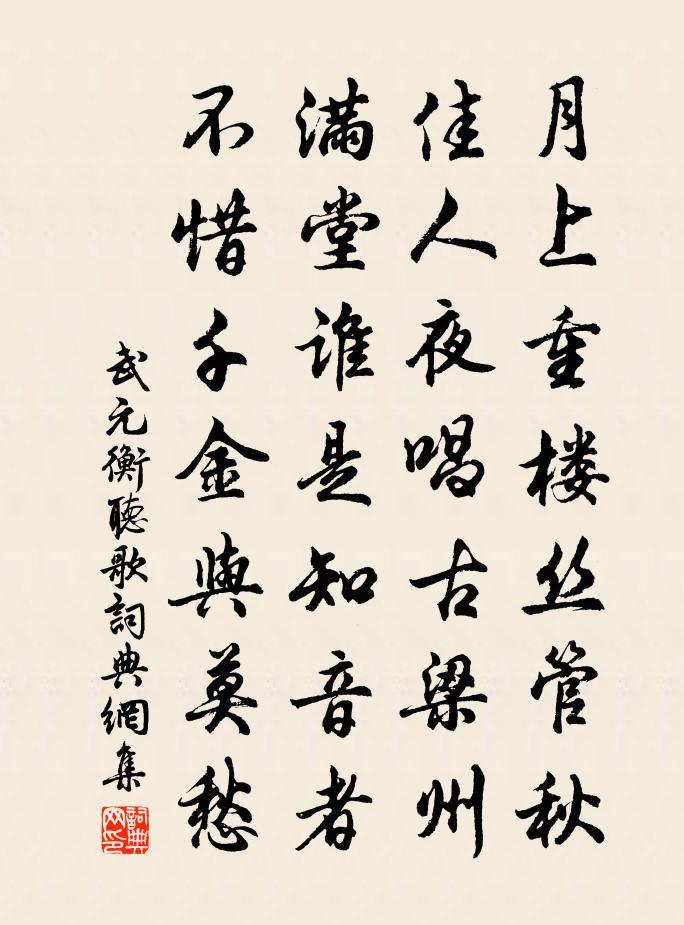 月上重楼丝管秋
佳人夜唱古梁州
满堂谁是知音者
不惜千金與莫愁
武元衡聽歌詞典網集
詞典网印